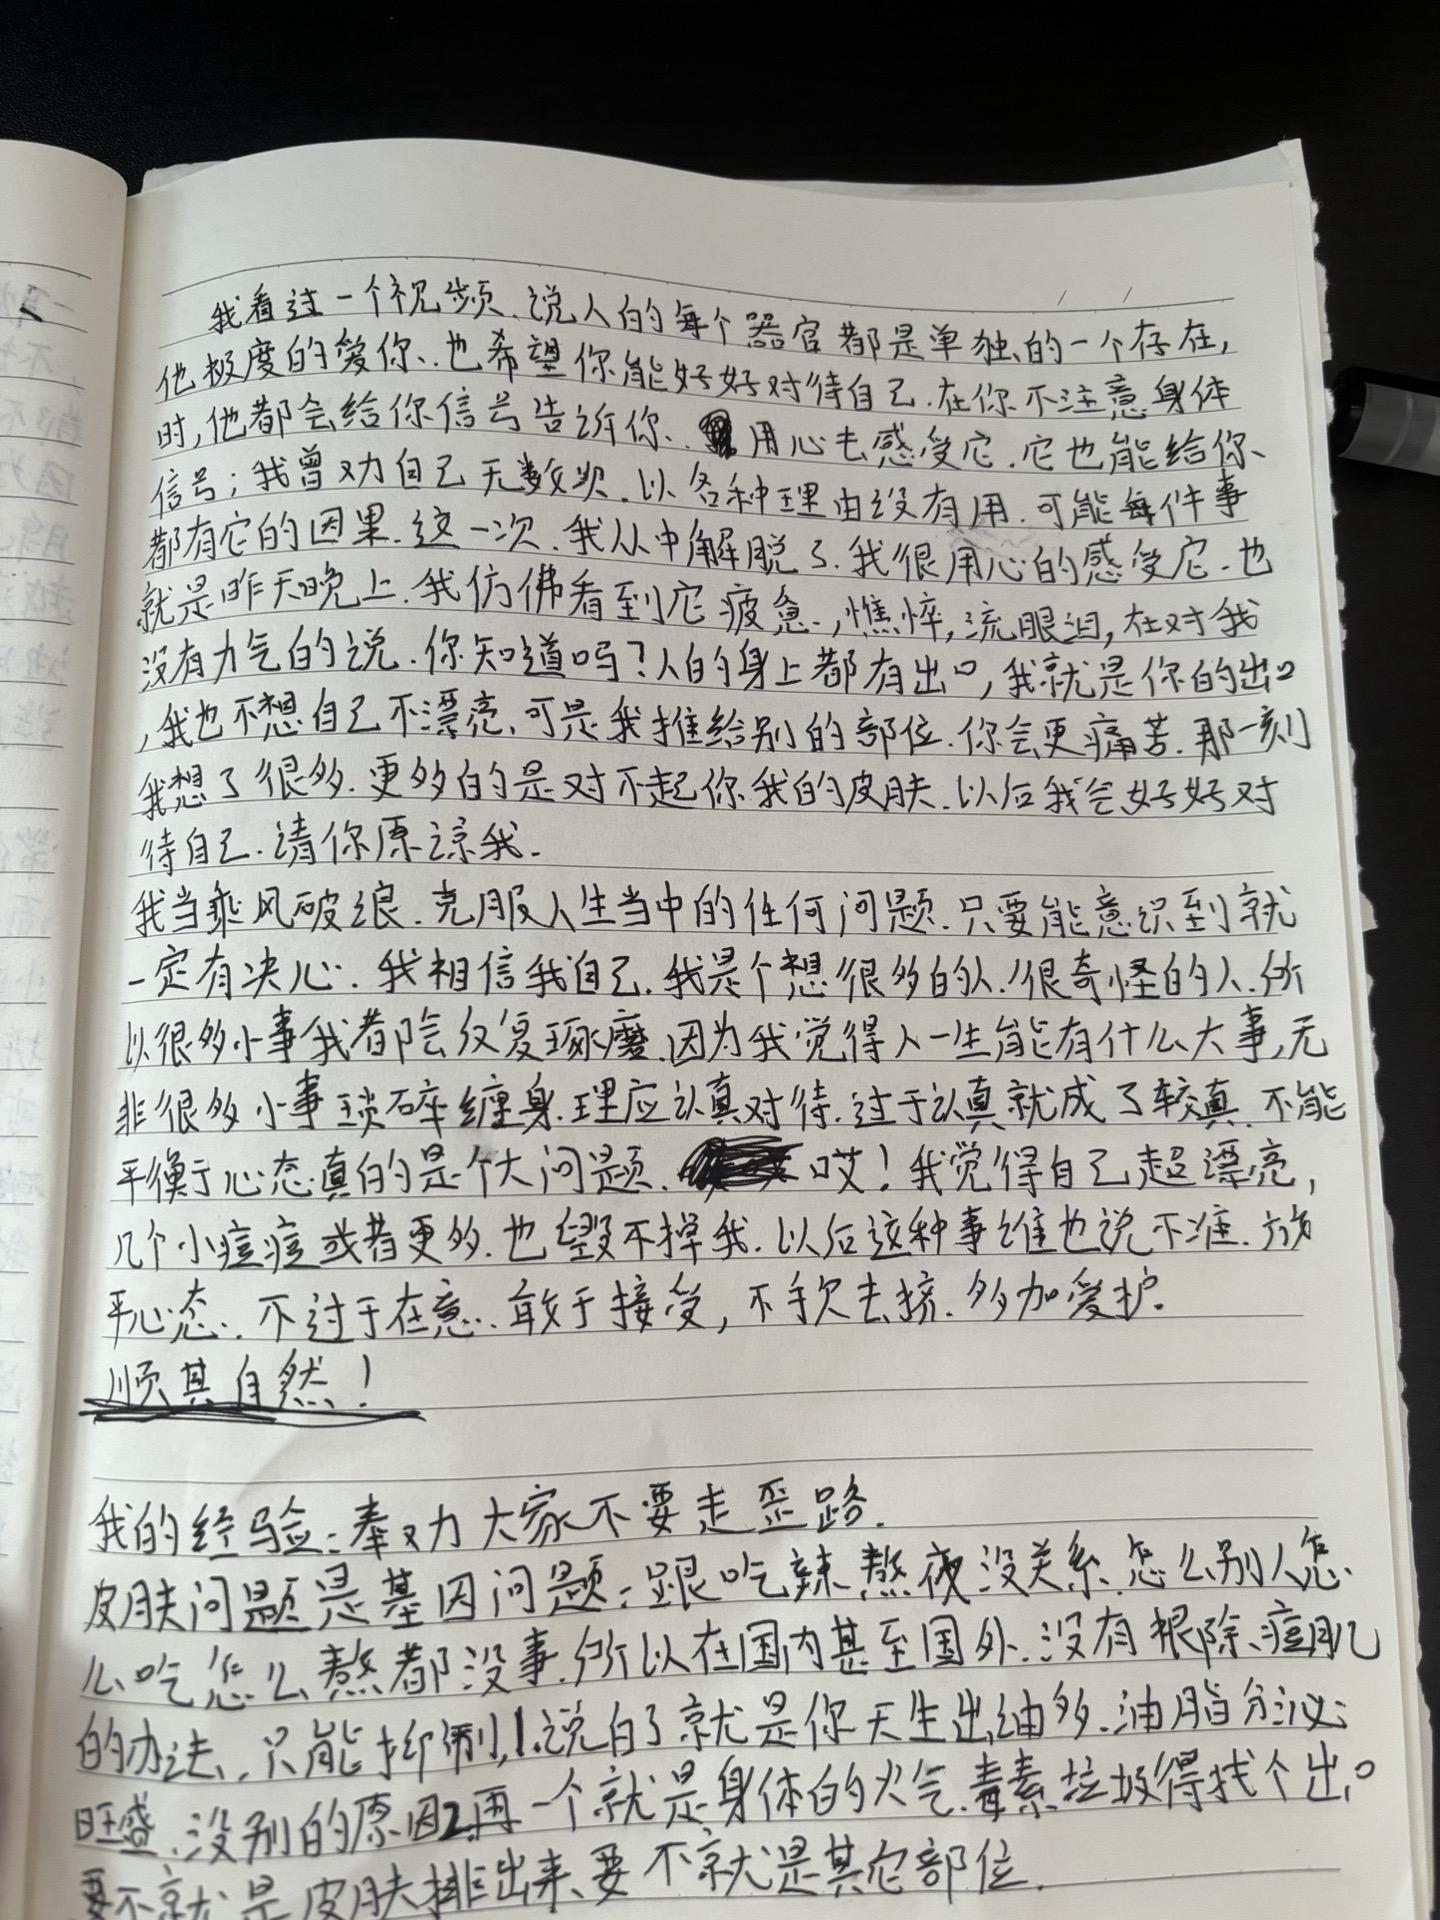 我看过一个视频.说人的每个器官都是单独的一个存在,
他极度的爱你.也希望你能好好对待自己.在你不注意身体
时,他都会给你信号告诉你.用心去感受它.它也能给你
信号;我曾劝自己无数次.以各种理由没有用.可能每件事
都有它的因果.这一次.我从中解脱了.我很用心的感受它.也
就是昨天晚上.我仿佛看到它疲惫,憔悴,流眼泪,在对我
没有力气的说.你知道吗?人的身上都有出口,我就是你的出口
,我也不想自己不漂亮.可是我推给别的部位.你会更痛苦.那一刻
我想了很多.更多的是对不起你我的皮肤.以后我会好好对
待自己.请你原谅我.
我当乘风破浪.克服人生当中的任何问题.只要能意识到就
一定有决心.我相信我自己.我是个想很多的人.很奇怪的人.所
以很多小事我都会反复琢磨.因为我觉得人一生能有什么大事,无
非很多小事琐碎缠身.理应认真对待.过于认真就成了较真.不能
平衡于心态真的是个大问题.哎!我觉得自己超漂亮,
几个小痘痘或者更多.也毁不掉我.以后这种事谁也说不准.放
平心态.不过于在意.敢于接受,不手欠去挤.多加爱护.
顺其自然!
我的经验:奉劝大家不要走歪路.
皮肤问题是基因问题:跟吃辣熬夜没关系.怎么别人怎
么吃怎么熬都没事.所以在国内甚至国外.没有根除痘肌
的办法.只能抑制,1.说白了就是你天生出油多.油脂分泌
旺盛.没别的原因2.再一个就是身体的火气.毒素垃圾得找个出口
要不就是皮肤排出来.要不就是其它部位.